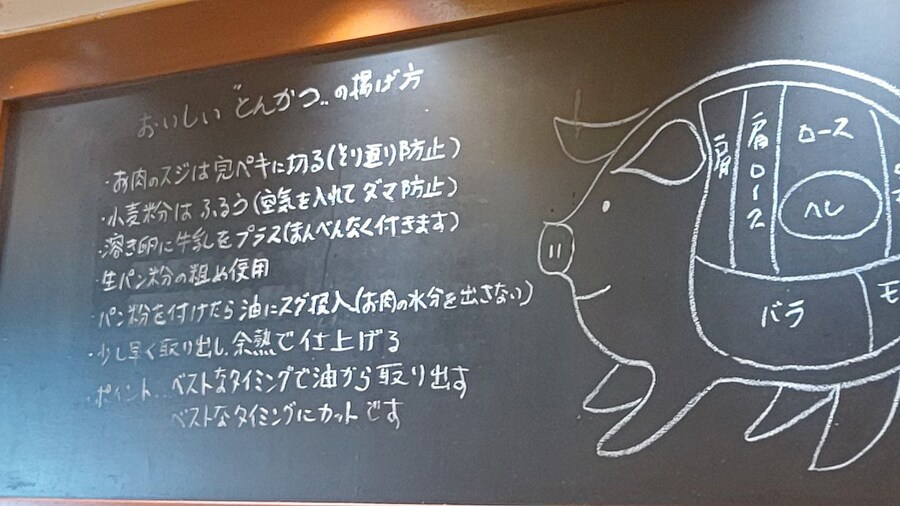 おいしい"とんかつ"の揚げ方
・お肉のスジは完ペキに切る(そり返り防止)
・小麦粉は ふるう(空気を入れて ダマ防止)
・溶き卵に牛乳をプラス(まんべんなく付きます)
・生パン粉の粗め使用
・パン粉を付けたら油にスグ投入(お肉の水分を出さない)
・少し早く取り出し、余熱で仕上げる
・ポイント…ベストなタイミングで油から取り出す
ベストなタイミングにカットです
肩
肩ロース
ロース
ヘレ
バラ
モ